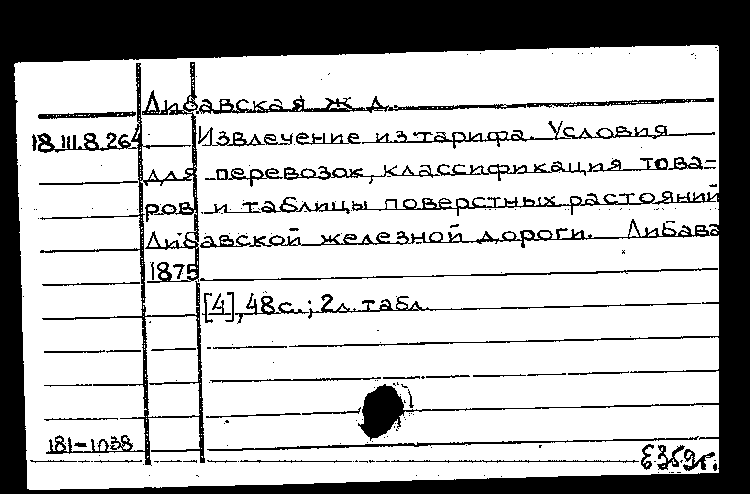 Либавская ж. д.
18.III.8.264. Извлечение из тарифа. Условия
для перевозок, классификация това-
ров и таблицы поверстных растояний
Либавской железной дороги. Либава
1875.
[4], 48с.; 2л. табл.
181-1038